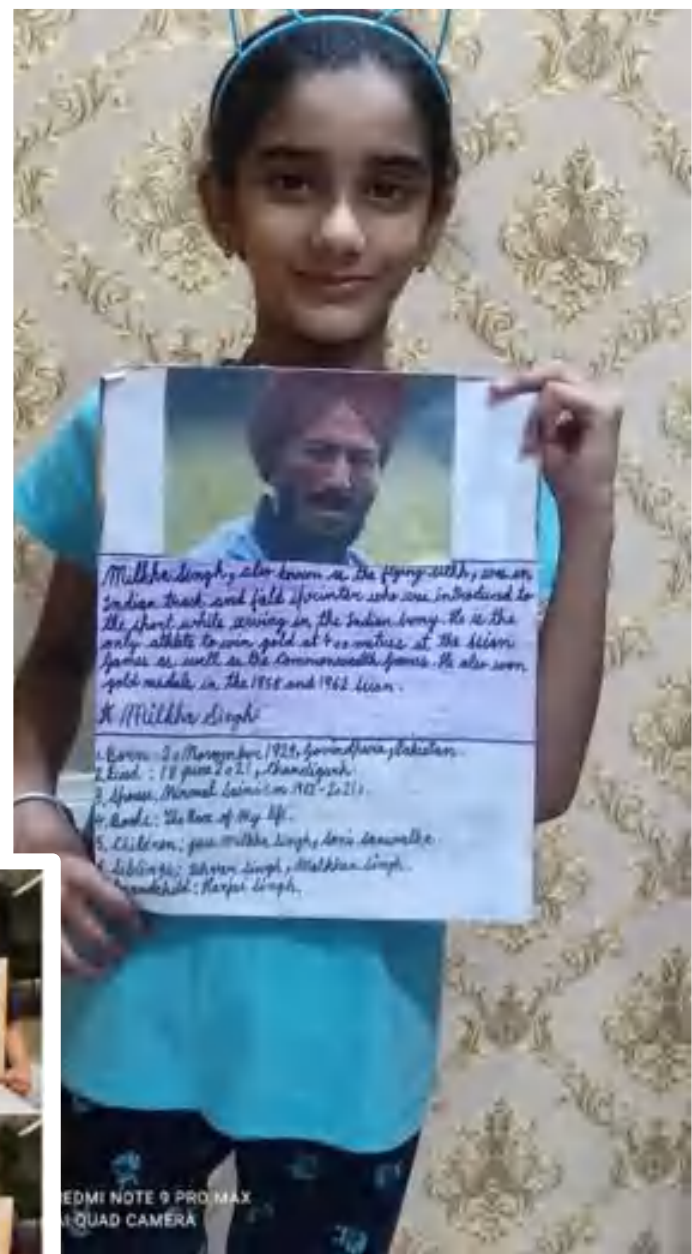 Milkha Singh, also known as the flying sikh, was an
Indian track and field sprinter who was introduced to
the sport while serving in the Indian Army. He is the
only athlete to win gold at 400 metres at the Asian
Games as well as the Commonwealth Games. He also won
gold medals in the 1958 and 1962 Asian.
Milkha Singh
1. Born: 20 November 1929, Govindpura, Pakistan.
2. Died: 18 June 2021, Chandigarh.
3. Spouse: Nirmal Saini
4. Book: The Race of My life.
5. Children: Jeev Milkha Singh, Sonia Sanwalka.
6. Siblings: Singh, Makhan Singh.
Grandchild: Harjai Singh.
REDMI NOTE 9 PRO MAX
AI QUAD CAMERA